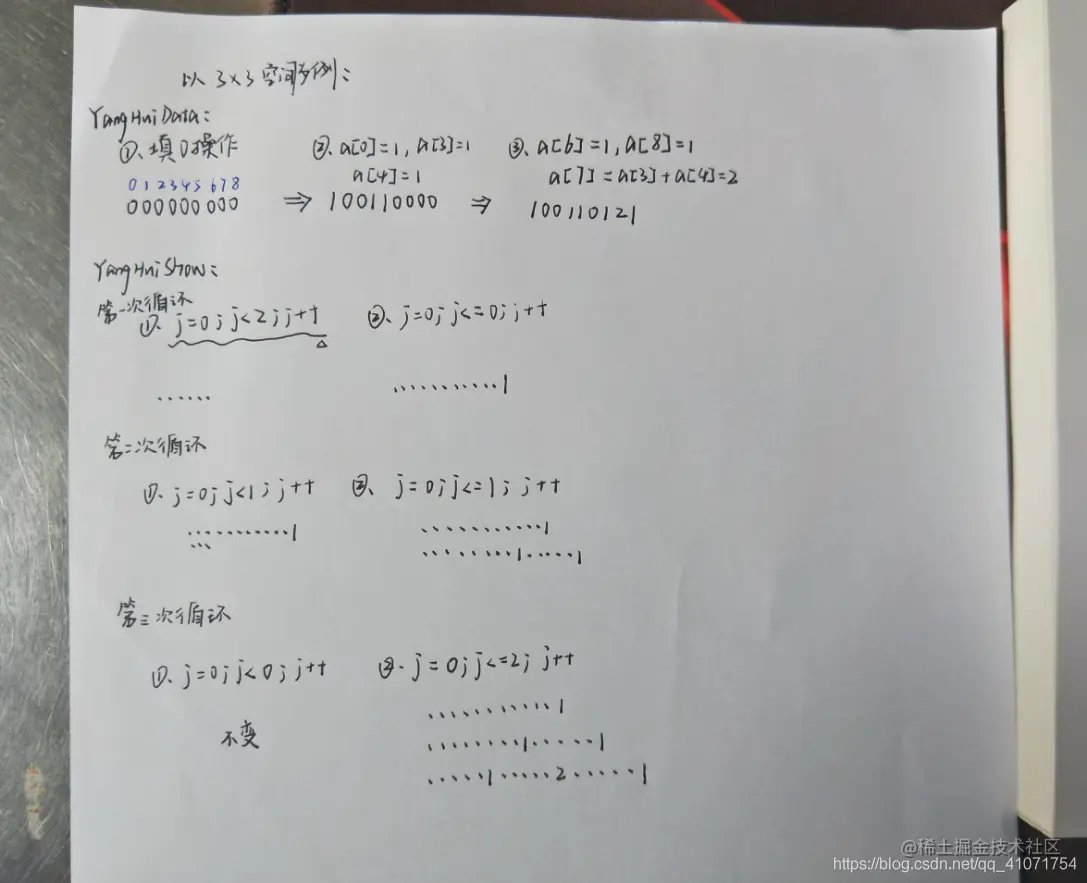 以 3×3 空间为例:
YangHuiData:
①、填0操作 ②、a[0]=1, a[3]=1 ③、a[6]=1, a[8]=1
a[4]=1 a[7]=a[3]+a[4]=2
0 1 2 3 4 5 6 7 8
000000000 ⇒ 100110000 ⇒ 100110121
YangHuiShow:
第一次循环
①、j=0; j<2; j++ ②、j=0; j<=0; j++
...... ...........1
第二次循环
①、j=0; j<1; j++ ②、j=0; j<=1; j++
...........1 ...........1
... ........1.....1
第三次循环
①、j=0; j<0; j++ ②、j=0; j<=2; j++
...........1
不变
........1.....1
.....1.....2.....1
@稀土掘金技术社区
https://blog.csdn.net/qq_41071754